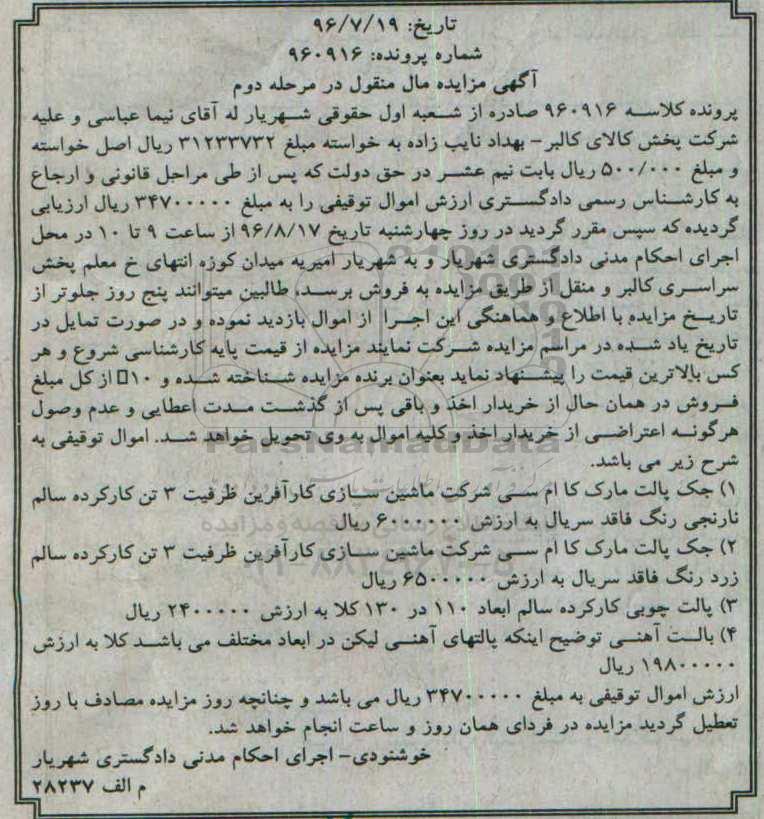 تاریخ: ۹۶/۷/۱۹
شماره پرونده: ۹۶۰۹۱۶
آگهی مزایده مال منقول در مرحله دوم
پرونده کلاسه ۹۶۰۹۱۶ صادره از شعبه اول حقوقی شهریار له آقای نیما عباسی و علیه
شرکت پخش کالای کالبر- بهداد نایب زاده به خواسته مبلغ ۳۱۲۳۳۷۳۲ ریال اصل خواسته
و مبلغ ۵۰۰/۰۰۰ ریال بابت نیم عشر در حق دولت که پس از طی مراحل قانونی و ارجاع
به کارشناس رسمی دادگستری ارزش اموال توقیفی را به مبلغ ۳۴۷۰۰۰۰۰ ریال ارزیابی
گردیده که سپس مقرر گردید در روز چهارشنبه تاریخ ۹۶/۸/۱۷ از ساعت ۹ تا ۱۰ در محل
اجرای احکام مدنی دادگستری شهریار و به شهریار امیریه میدان کوزه انتهای خ معلم پخش
سراسری کالبر و منقل از طریق مزایده به فروش برسد، طالبین میتوانند پنج روز جلوتر از
تاریخ مزایده با اطلاع و هماهنگی این اجرا از اموال بازدید نموده و در صورت تمایل در
تاریخ یاد شده در مراسم مزایده شرکت نمایند مزایده از قیمت پایه کارشناسی شروع و هر
کس بالاترین قیمت را پیشنهاد نماید بعنوان برنده مزایده شناخته شده و ۱۰ از کل مبلغ
فروش در همان حال از خریدار اخذ و باقی پس از گذشت مدت اعطایی و عدم وصول
هرگونه اعتراضی از خریدار اخذ و کلیه اموال به وی تحویل خواهد شد. اموال توقیفی به
شرح زیر می باشد.
۱) جک پالت مارک کا ام سی شرکت ماشین سازی کارآفرین ظرفیت ۳ تن کارکرده سالم
نارنجی رنگ فاقد سریال به ارزش ۶۰۰۰۰۰۰ ریال
۲) جک پالت مارک کا ام سی شرکت ماشین سازی کارآفرین ظرفیت ۳ تن کارکرده سالم
زرد رنگ فاقد سریال به ارزش ۶۵۰۰۰۰۰ ریال
۳) پالت چوبی کارکرده سالم ابعاد ۱۱۰ در ۱۳۰ کلا به ارزش ۲۴۰۰۰۰۰ ریال
۴) بالت آهنی توضیح اینکه پالتهای آهنی لیکن در ابعاد مختلف می باشد کلا به ارزش
۱۹۸۰۰۰۰۰ ریال
ارزش اموال توقیفی به مبلغ ۳۴۷۰۰۰۰۰ ریال می باشد و چنانچه روز مزایده مصادف با روز
تعطیل گردید مزایده در فردای همان روز و ساعت انجام خواهد شد.
خوشنودی- اجرای احکام مدنی دادگستری شهریار
م الف ۲۸۲۳۷
ParsNamadData